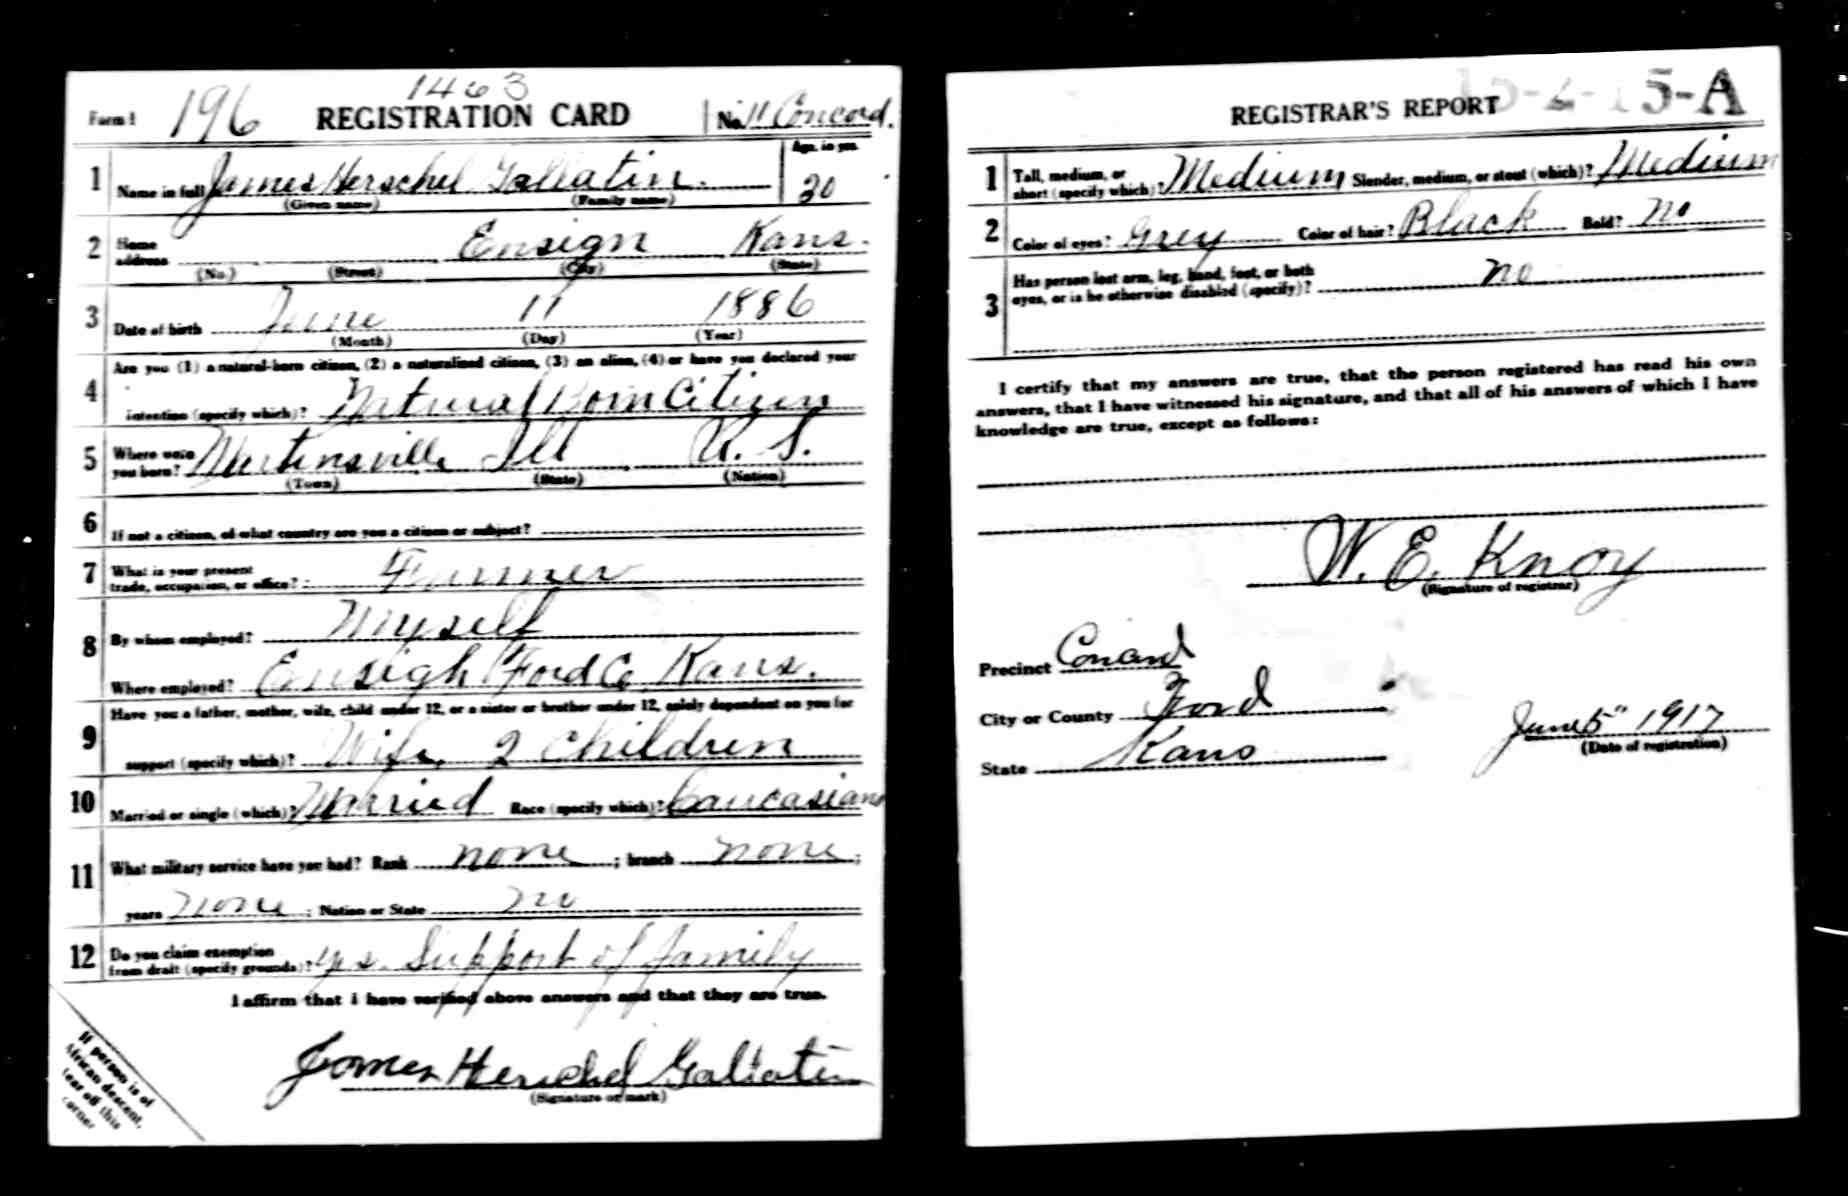 1463
Form 1 196 REGISTRATION CARD No. 11 Concord.
1 Name in full James Herschel Gallatin. Age, in yrs. 30
(Given name) (Family name)
2 Home address Ensign Kans.
(No.) (Street) (City) (State)
3 Date of birth June 11 1886
(Month) (Day) (Year)
4 Are you (1) a natural-born citizen, (2) a naturalized citizen, (3) an alien, (4) or have you declared your
intention (specify which)? Natural Born Citizen
5 Where were you born? Martinsville Ill U. S.
(Town) (State) (Nation)
6 If not a citizen, of what country are you a citizen or subject?
7 What is your present
trade, occupation, or office? Farmer
8 By whom employed? Myself
Where employed? Ensigh Ford Co, Kans.
9 Have you a father, mother, wife, child under 12, or a sister or brother under 12, solely dependent on you for
support (specify which)? Wife, 2 children
10 Married or single (which)? Married Race (specify which)? Caucasian
11 What military service have you had? Rank none ; branch none ;
years none ; Nation or State no
12 Do you claim exemption
from draft (specify grounds)? yes. Support of family
I affirm that I have verified above answers and that they are true.
James Herschel Gallatin
(Signature or mark)
If person is of
African descent,
tear off this
corner
REGISTRAR'S REPORT 15-2-15-A
1 Tall, medium, or
short (specify which)? Medium Slender, medium, or stout (which)? Medium
2 Color of eyes? Grey Color of hair? Black Bald? No
3 Has person lost arm, leg, hand, foot, or both
eyes, or is he otherwise disabled (specify)? no
I certify that my answers are true, that the person registered has read his own
answers, that I have witnessed his signature, and that all of his answers of which I have
knowledge are true, except as follows:
W. E. Knoy
(Signature of registrar)
Precinct Concord
City or County Ford
State Kans
June 5" 1917
(Date of registration)